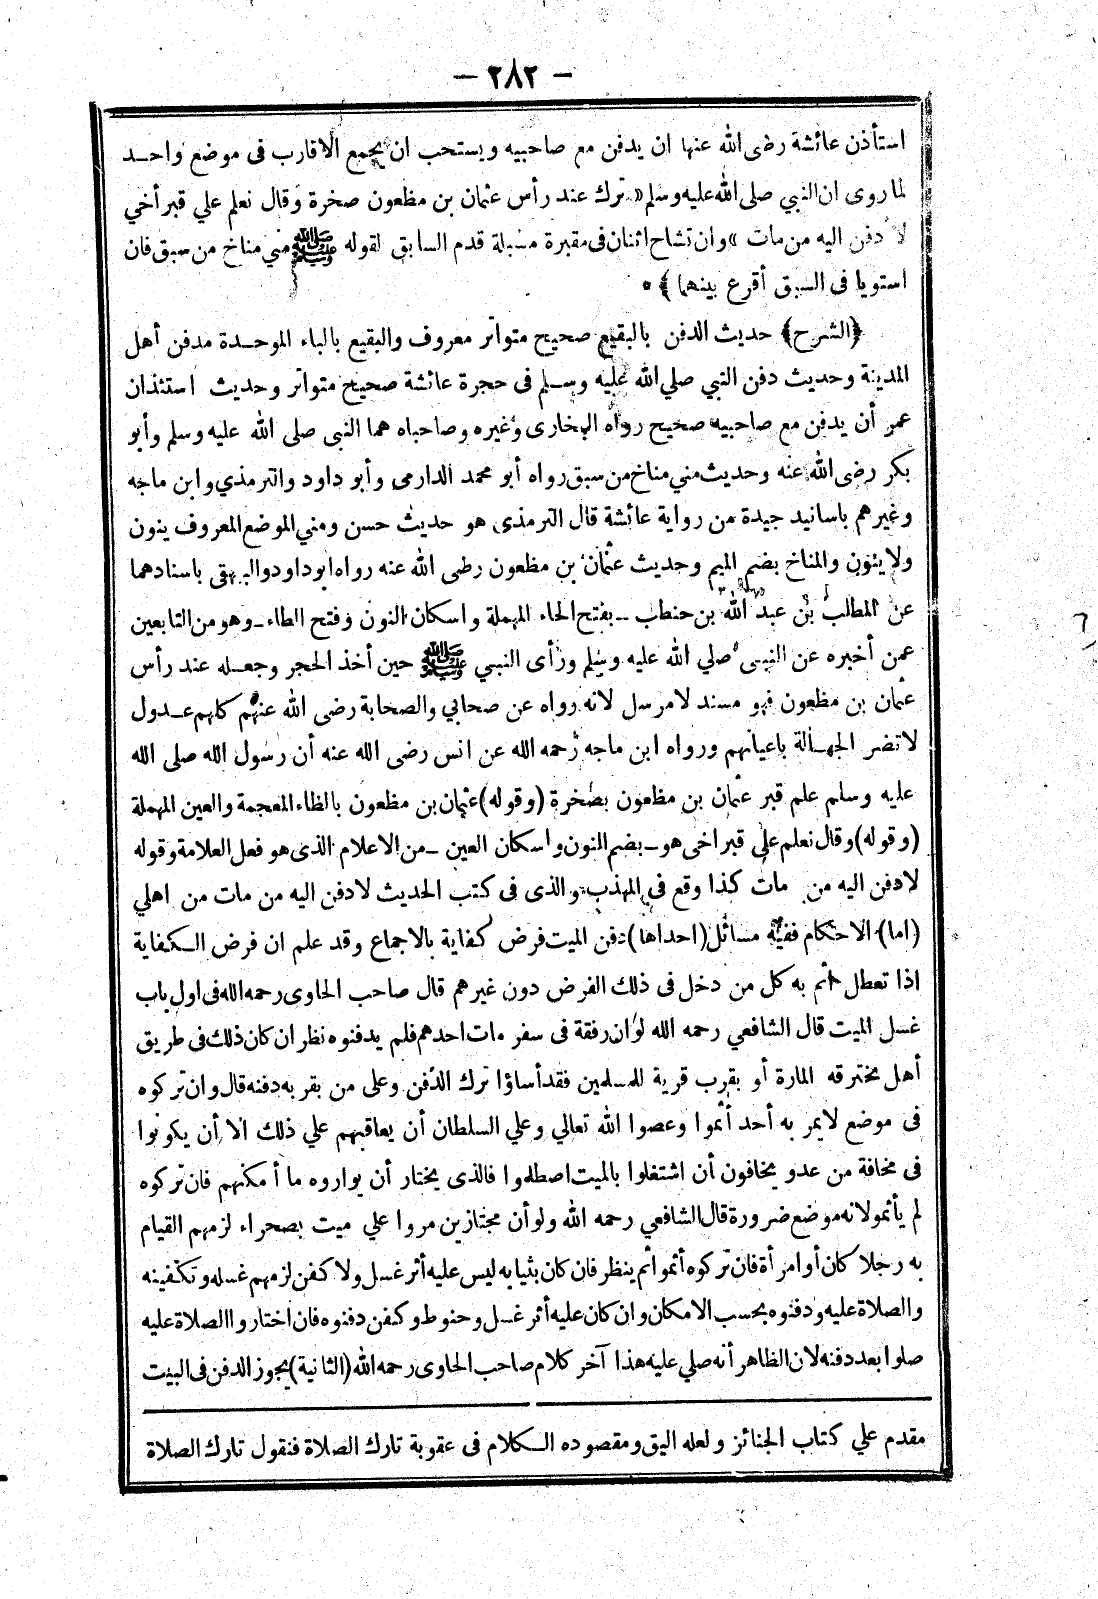 — ٢٨٢ —
استأذن عائشة رضى الله عنها ان يدفن مع صاحبيه ويستحب ان يجمع الاقارب فى موضع واحـد
لما روى ان النبي صلى الله عليه وسلم « ترك عند رأس عثمان بن مظعون صخرة وقال نعلم علي قبر أخي
لأدفن اليه من مات » وان تشاح اثنان فى مقبرة مسبلة قدم السابق لقوله ﷺ مني مناخ من سبق فان
استويا فى السبق أقرع بينهما ﴾ •
﴿الشرح﴾ حديث الدفن بالبقيع صحيح متواتر معروف والبقيع بالباء الموحـدة مدفن أهل
المدينة وحديث دفن النبي صلي الله عليه وسـلم فى حجرة عائشة صحيح متواتر وحديث استئذان
عمر أن يدفن مع صاحبيه صحيح رواه البخارى وغيره وصاحباه هما النبى صلى الله عليه وسلم وأبو
بكر رضى الله عنه وحديث مني مناخ من سبق رواه أبو محمد الدارمى وأبو داود والترمذي وابن ماجه
وغيرهم باسانيد جيدة من رواية عائشة قال الترمذى هو حديث حسن ومني الموضع المعروف ينون
ولا ينون والمناخ بضم الميم وحديث عثمان بن مظعون رضى الله عنه رواه ابو داود والبيهقى باسنادهما
عن المطلب بن عبد الله بن حنطب ــ بفتح الحاء المهملة واسكان النون وفتح الطاء ــ وهو من التابعين
عمن أخبره عن النبى صلي الله عليه وسلم ورأى النبي ﷺ حين أخذ الحجر وجعـله عند رأس
عثمان بن مظعون فهو مسند لا مرسل لانه رواه عن صحابي والصحابة رضى الله عنهم كلهم عـدول
لا تضر الجهـالة باعيانهم ورواه ابن ماجه رحمه الله عن انس رضى الله عنه أن رسول الله صلى الله
عليه وسلم علم قبر عثمان بن مظعون بصخرة (وقوله) عثمان بن مظعون بالظاء المعجمة والعين المهملة
(وقوله) وقال نعلم علي قبر اخى هو ــ بضم النون واسكان العين ــ من الاعلام الذى هو فعل العلامة وقوله
لادفن اليه من مات كذا وقع فى المهذب والذى فى كتب الحديث لا دفن اليه من مات من اهلي
(اما) الاحكام ففيه مسائل (احداها) دفن الميت فرض كفاية بالاجماع وقد علم ان فرض الـكفاية
اذا تعطل أثم به كل من دخل فى ذلك الفرض دون غيرهم قال صاحب الحاوى رحمه الله فى اول باب
غسل الميت قال الشافعي رحمه الله لو ان رفقة فى سفر مات احدهم فلم يدفنوه نظر ان كان ذلك فى طريق
أهل يخترقه المارة أو بقرب قرية للمسلمين فقد أساؤا ترك الدفن وعلى من بقر به دفنه قال وان تركوه
فى موضع لا يمر به أحد أثموا وعصوا الله تعالي وعلي السلطان أن يعاقبهم علي ذلك الا أن يكونوا
فى مخافة من عدو يخافون أن اشتغلوا بالميت اصطلوا فالذى يختار أن يواروه ما أمكنهم فان تركوه
لم يأثموا لانه موضع ضرورة قال الشافعي رحمه الله ولو أن مجتازين مروا علي ميت بصحراء لزمهم القيام
به رجلا كان أو امرأة فان تركوه أثموا ثم ينظر فان كان بثيابه ليس عليه أثر غسل ولا كفن لزمهم غسله وتكفينه
والصلاة عليه ودفنوه بحسب الامكان وان كان عليه أثر غسل وحنوط وكفن دفنوه فان اختاروا الصلاة عليه
صلوا بعد دفنه لان الظاهر أنه صلي عليه هذا آخر كلام صاحب الحاوى رحمه الله (الثانية) يجوز الدفن فى البيت
مقدم علي كتاب الجنائز ولعله اليق ومقصوده الـكلام فى عقوبة تارك الصلاة فنقول تارك الصلاة